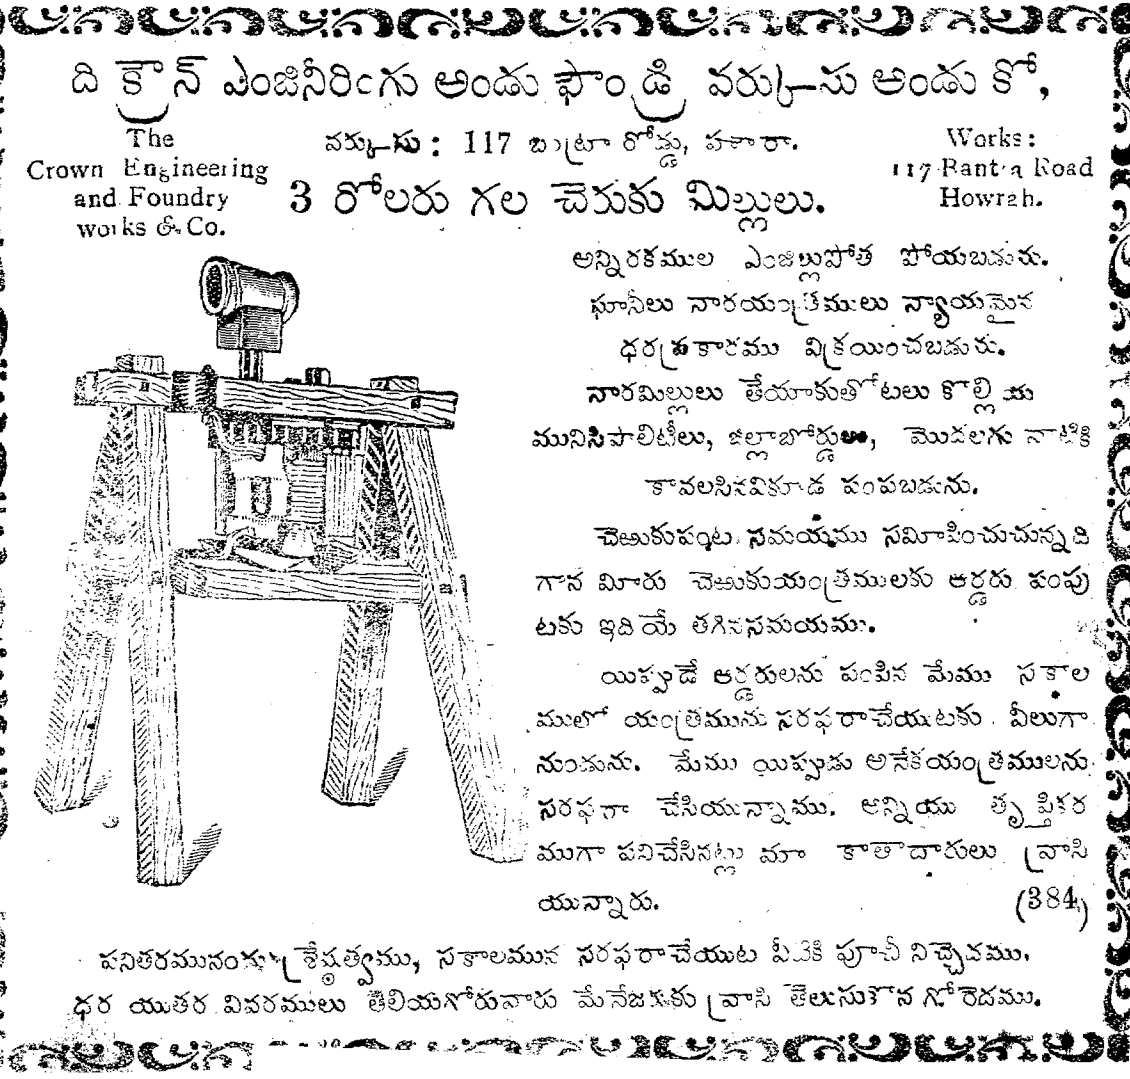 ది క్రౌన్ ఎంజినీరింగు అండు ఫౌండ్రి వర్కుసు అండు కో,
The
Crown Engineering
and Foundry
works & Co.
వర్కుసు: 117 బాట్రా రోడ్డు, హౌరా.
Works:
117 Bantra Road
Howrah.
3 రోలరు గల చెరుకు మిల్లులు.
అన్నిరకముల ఎంజిల్లుపోత పోయబడును.
ఘానీలు నారయంత్రములు న్యాయమైన
ధరప్రకారము విక్రయించబడును.
నారమిల్లులు తేయాకుతోటలు కొల్లియ
మునిసిపాలిటీలు, జిల్లాబోర్డులు, మొదలగు వాటికి
కావలసినవికూడ పంపబడును.
చెఱుకుపంట సమయము సమీపించుచున్నది
గాన మీరు చెఱుకుయంత్రములకు ఆర్డరు పంపు
టకు ఇదియే తగినసమయము.
యిప్పుడే ఆర్డరులను పంపిన మేము సకాల
ములో యంత్రమును సరఫరాచేయుటకు వీలుగా
నుండును. మేము యిప్పుడు అనేకయంత్రములను
సరఫరా చేసియున్నాము. అన్నియు తృప్తికర
ముగా పనిచేసినట్లు మా కాతాదారులు వ్రాసి
యున్నారు.
(384)
పనితరమునందు శ్రేష్ఠత్వము, సకాలమున సరఫరాచేయుట వీటికి పూచీ నిచ్చెదము.
ధర యితర వివరములు తెలియగోరువారు మేనేజరుకు వ్రాసి తెలుసుకొన గోరెదము.